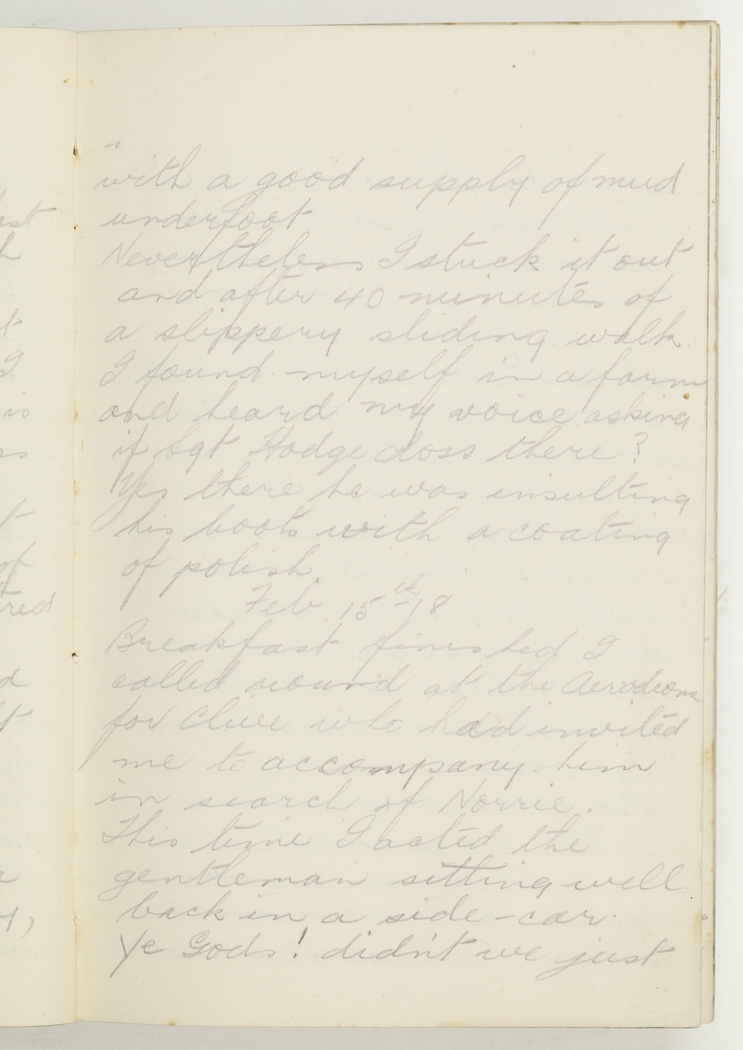 with a good supply of mud
underfoot
Nevertheless I stuck it out
and after 40 minutes of
a slippery sliding walk
I found myself in a farm
and heard my voice asking
if Sgt Hodge doss there?
Yes there he was insulting
his boots with a coating
of polish
Feb 15th -18
Breakfast finished I
called around at the Aerodrome
for Clive who had invited
me to accompany him
in search of Norrie.
This time I acted the
gentleman sitting well
back in a side-car.
Ye Gods! didn't we just